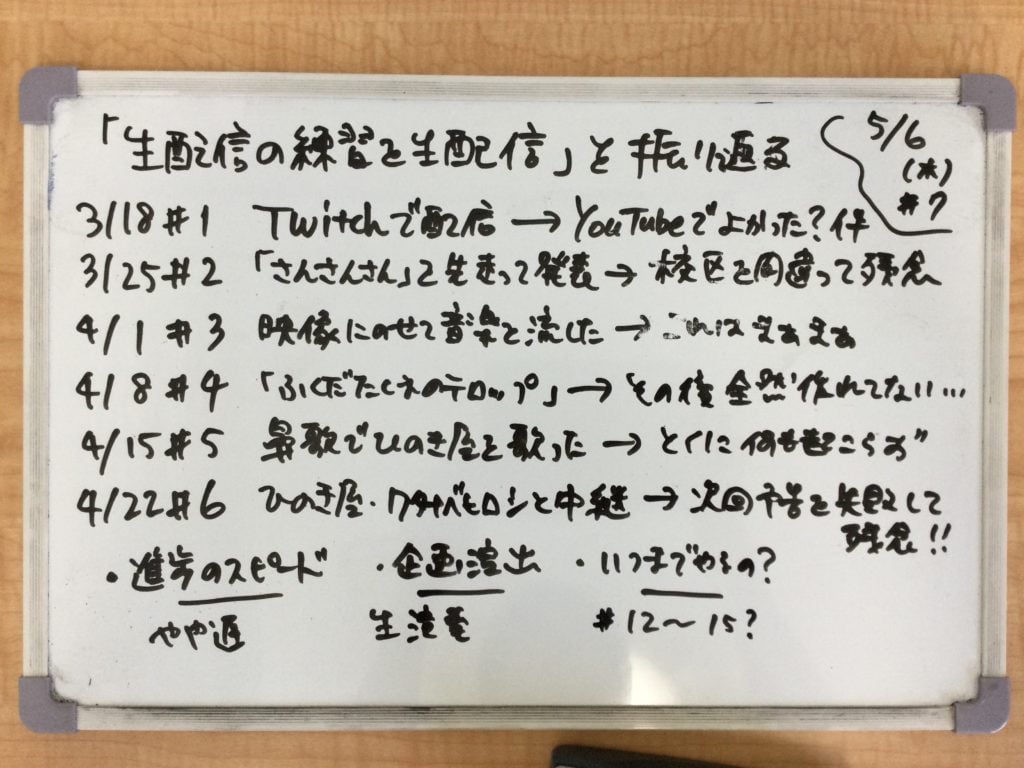 「生配信の練習を生配信」を振り返る
5/6
(水)
#7
3/18 #1 Twitchで配信 → YouTubeでよかった?件
3/25 #2 「さんさんさん」を生走って発表 → 校区を間違って残念
4/1 #3 映像にのせて音楽を流した → これはまぁまぁ
4/8 #4 「ふくだたくネのテロップ」 → その後全然作れてない…
4/15 #5 鼻歌でひのき屋を歌った → とくに何も起こらず
4/22 #6 ひのき屋・ワタナベヒロシと中継 → 次回予告を失敗して
残念!!
・進歩のスピード ・企画演出 ・いつまでやるの?
やや遅 生演奏 #12〜15?